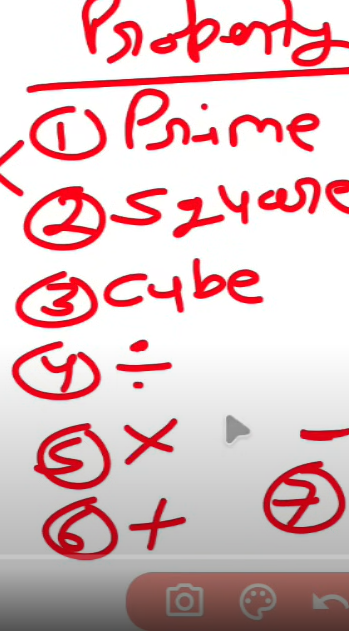 Property
① Prime
② Square
③ Cube
④ ÷
⑤ ×
⑥ +
⑦ -